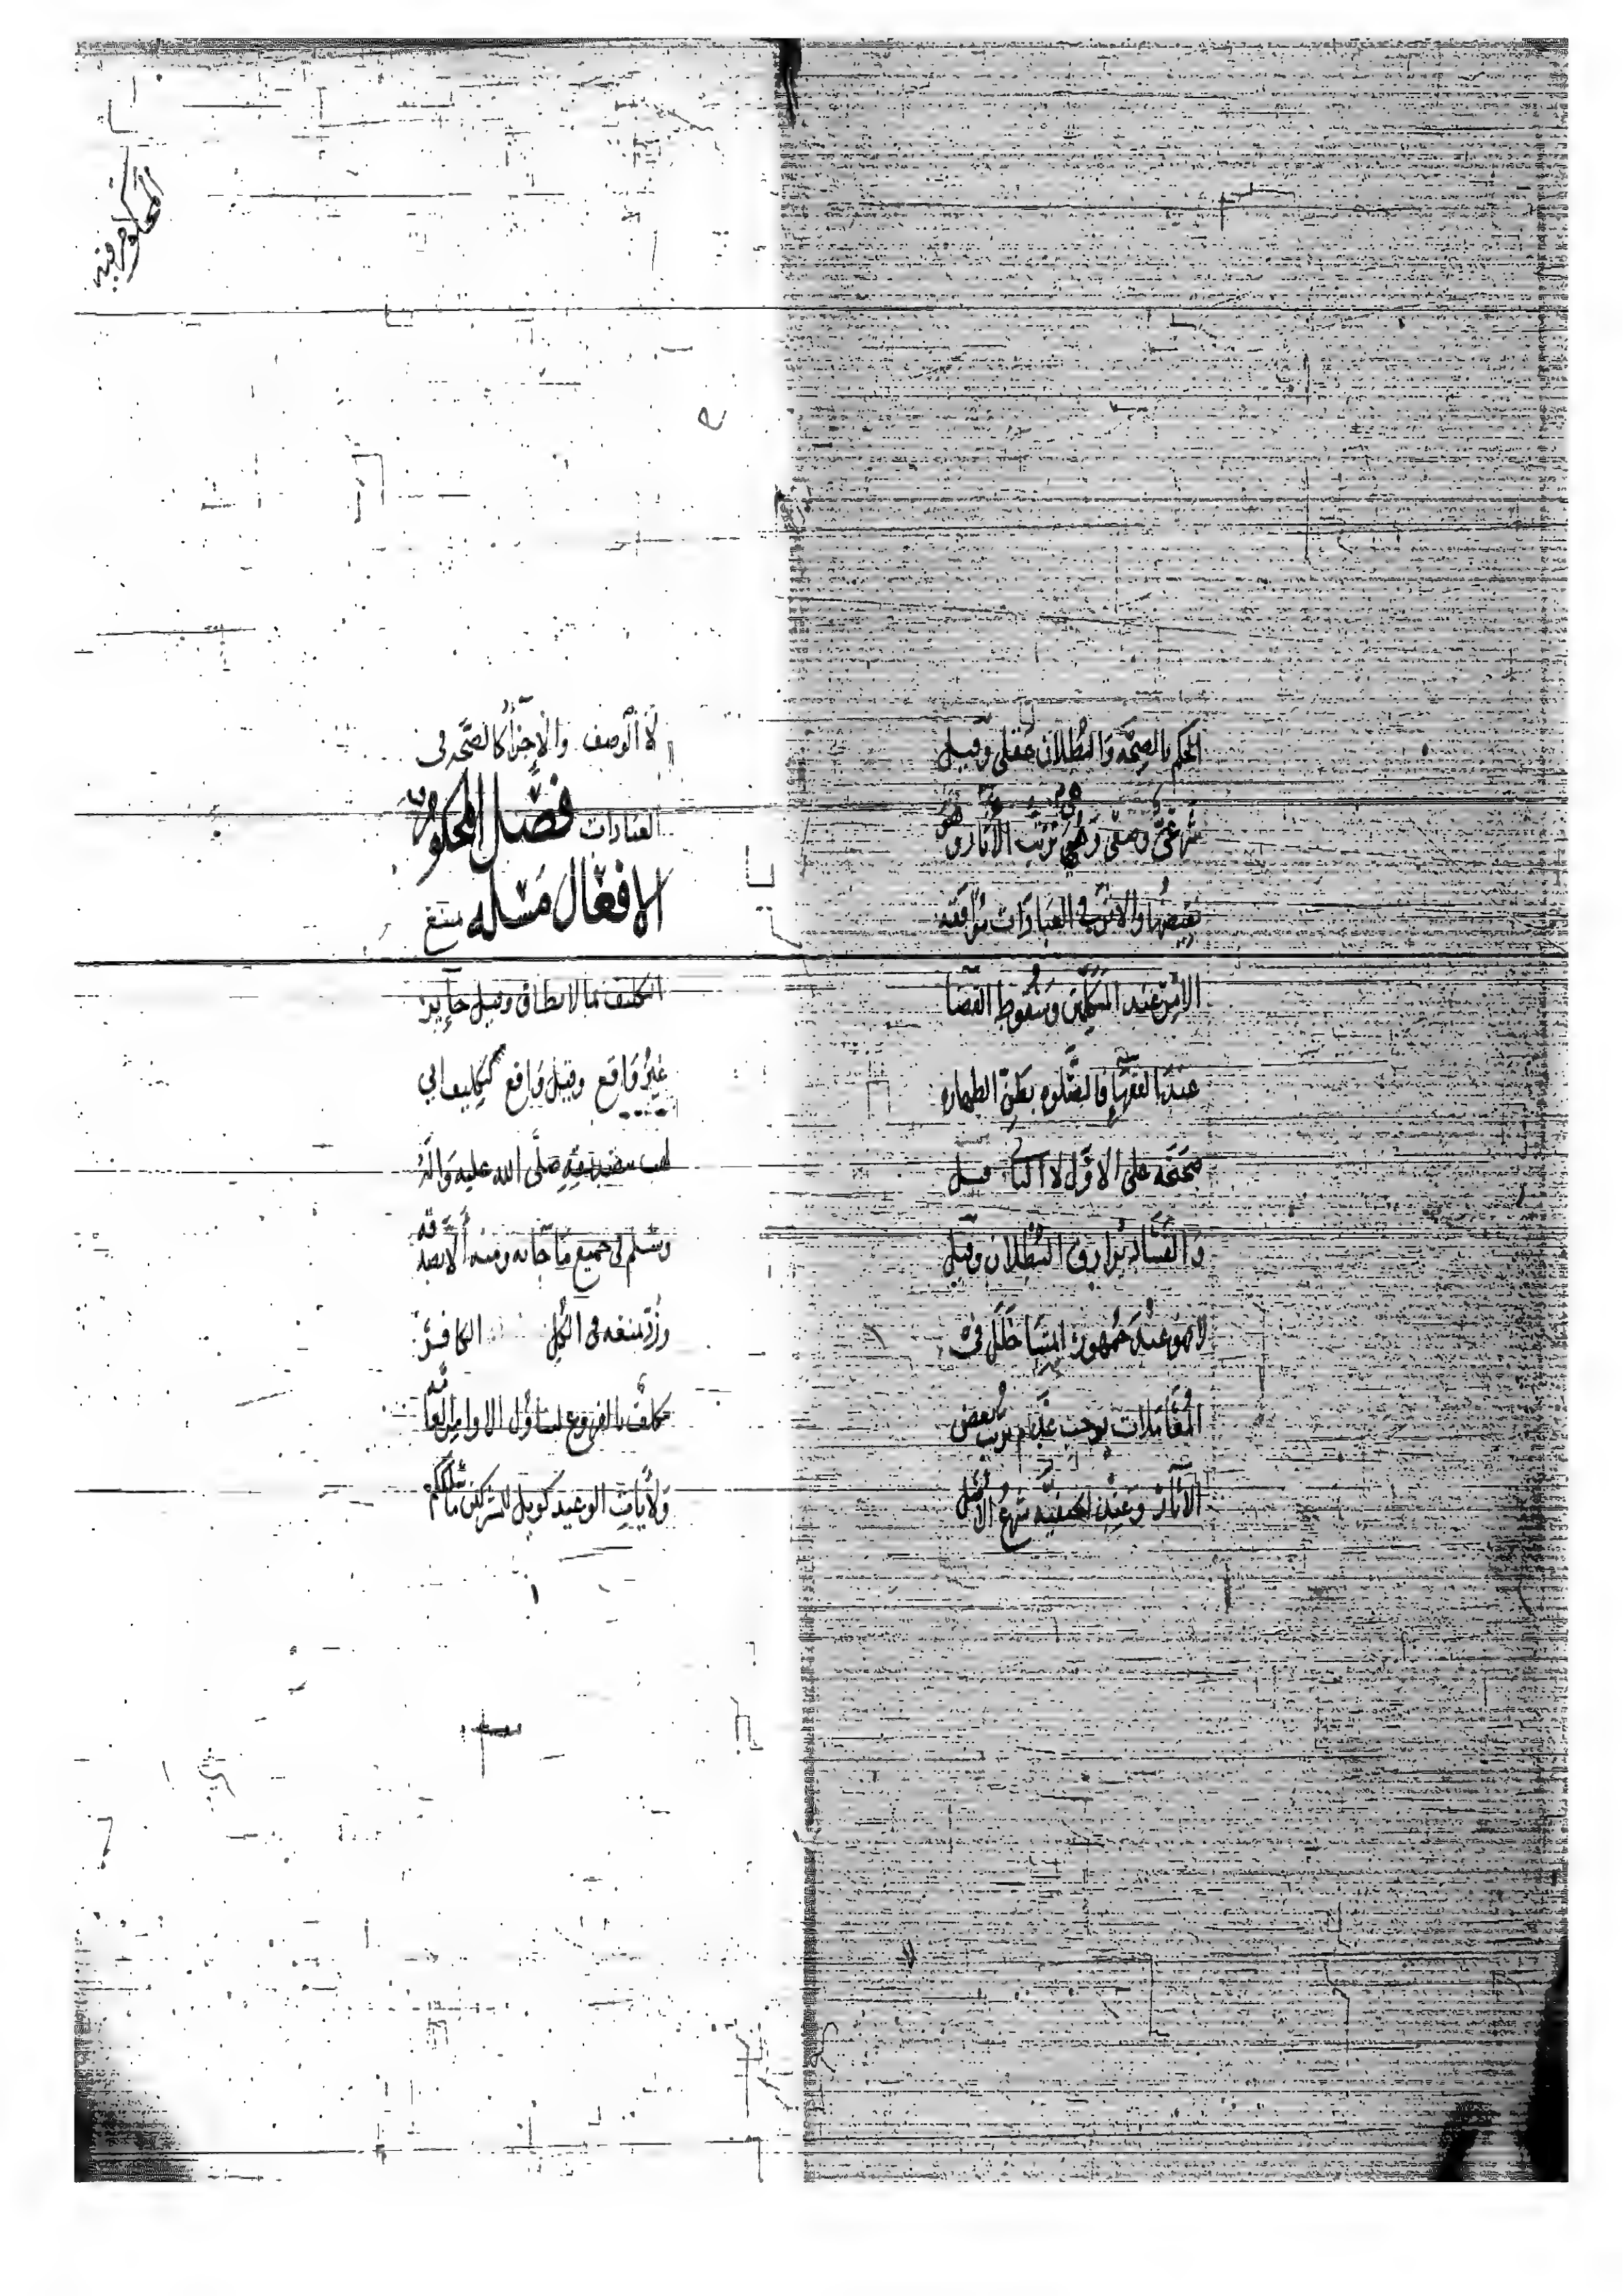 الحكم بالصحة والبطلان عقلي وقيل
شرعي وضعي وهي ترتب الآثار وهو
نقيضها والاثر في العبادات موافقة
الامر عند المتكلمين وسقوط القضا
عند الفقها فالصلوة بظن الطهاره
صحيحه على الاول لا الثاني قيل
والفساد يرادف البطلان وقيل
لا هو عند جمهور ايمتنا خلل في
المعاملات يوجب عدم ترتب بعض
الآثار وعند الحنفيه شرع الاصل
لا الوصف والاجزا كالصحه في
العبادات فصل المحكوم فيه
الافعال مسئله يمتنع
التكليف بما لا يطاق وقيل جايز
غير واقع وقيل واقع كتكليف ابي
لهب بتصديقه صلى الله عليه واله
وسلم في جميع ما جا به ومنه ألا يصدقه
ورد بمنعه في الكل الكافر
مكلف بالفروع لتناول الاوامر العامه
ولآيات الوعيد كويل للمشركين ما سلككم
المحكوم فيه